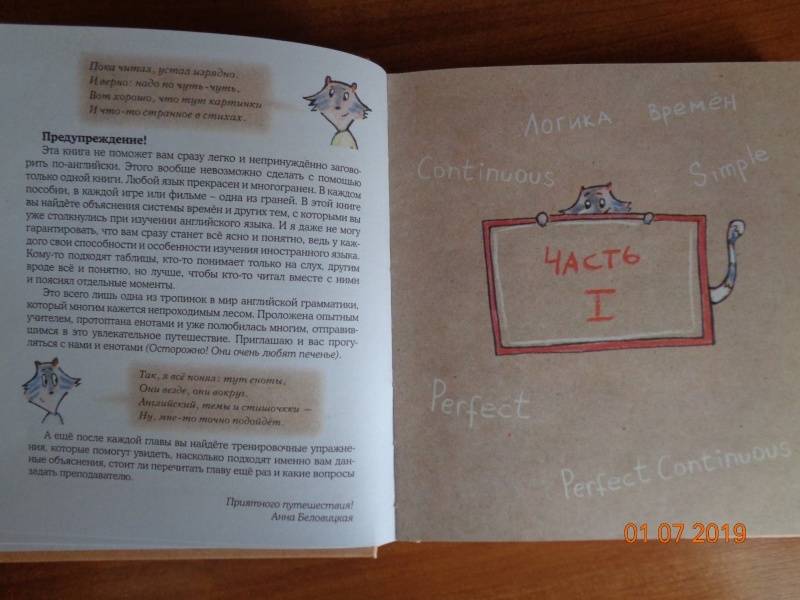 Пока читал, устал изрядно.
И верно: надо по чуть-чуть,
Вот хорошо, что тут картинки
И что-то странное в стихах.
Предупреждение!
Эта книга не поможет вам сразу легко и непринуждённо загово-
рить по-английски. Этого вообще невозможно сделать с помощью
только одной книги. Любой язык прекрасен и многогранен. В каждом
пособии, в каждой игре или фильме – одна из граней. В этой книге
вы найдёте объяснения системы времён и других тем, с которыми вы
уже столкнулись при изучении английского языка. И я даже не могу
гарантировать, что вам сразу станет всё ясно и понятно, ведь у каж-
дого свои способности и особенности изучения иностранного языка.
Кому-то подходят таблицы, кто-то понимает только на слух, другим
вроде всё и понятно, но лучше, чтобы кто-то читал вместе с ними
и пояснял отдельные моменты.
Это всего лишь одна из тропинок в мир английской грамматики,
который многим кажется непроходимым лесом. Проложена опытным
учителем, протоптана енотами и уже полюбилась многим, отправив-
шимся в это увлекательное путешествие. Приглашаю и вас прогу-
ляться с нами и енотами (Осторожно! Они очень любят печенье).
Так, я всё понял: тут еноты,
Они везде, они вокруг.
Английский, темы и стишочкки –
Ну, мне-то точно подойдёт.
А ещё после каждой главы вы найдёте тренировочные упражне-
ния, которые помогут увидеть, насколько подходят именно вам дан-
ные объяснения, стоит ли перечитать главу ещё раз и какие вопросы
задать преподавателю.
Приятного путешествия!
Анна Беловицкая
Логика времён
Continuous
Simple
Часть
I
Perfect
Perfect Continuous
01 07 2019